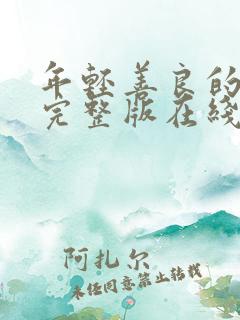 年轻善良的
完整版在线
阿扎尔
未任同意禁止转载